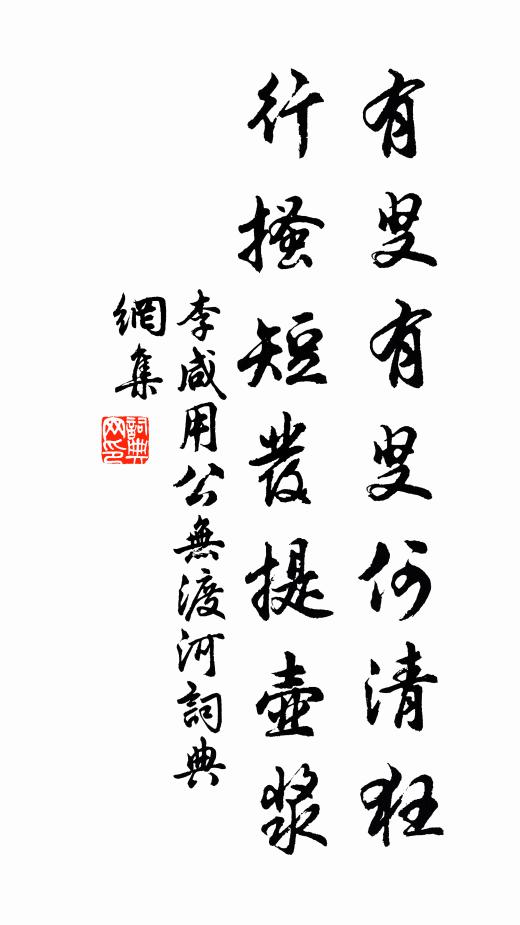 有叟有叟何清狂
行搔短發提壺漿
李咸用公無渡河詞典
網集
詞典
网印